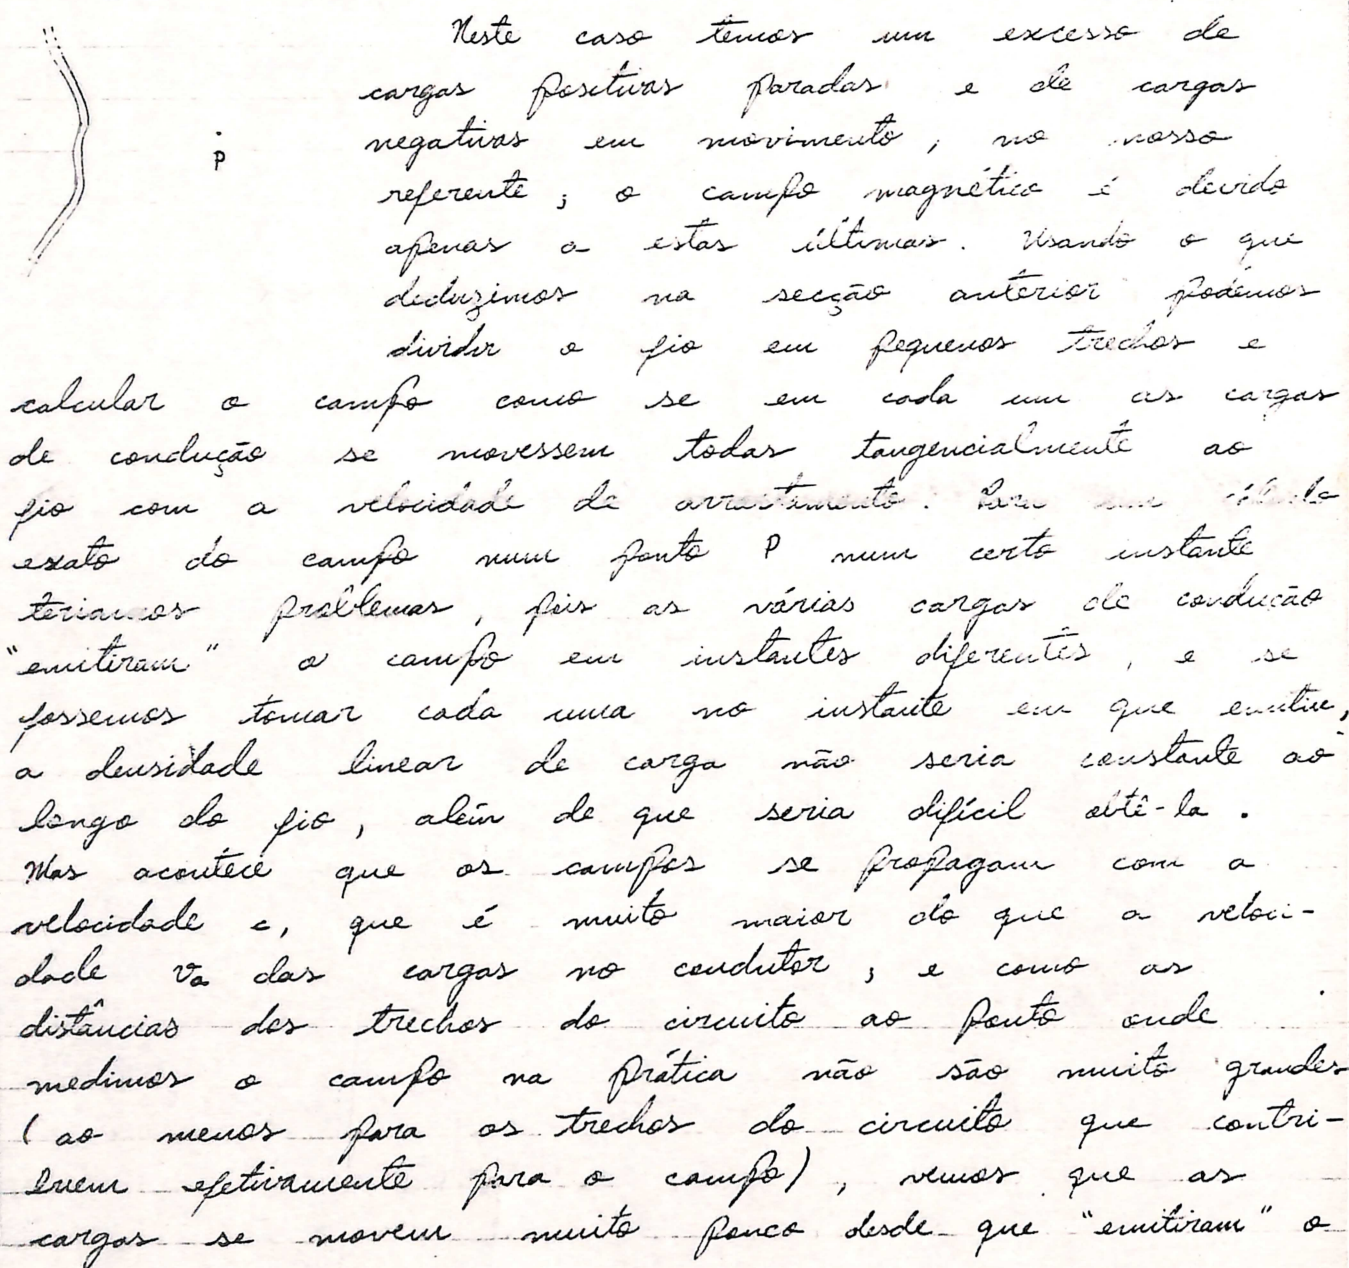 Neste caso temos um excesso de
cargas positivas paradas e de cargas
P
negativas em movimento, no nosso
referente; o campo magnético é devido
apenas a estas últimas. Usando o que
deduzimos na secção anterior podemos
dividir o fio em pequenos trechos e
calcular o campo como se em cada um as cargas
de condução se movessem todas tangencialmente ao
fio com a velocidade de arrastamento. Para um
exato do campo num ponto P num certo instante
teriamos problemas, pois as várias cargas de condução
"emitiram" o campo em instantes diferentes, e se
fossemos tomar cada uma no instante em que emitiu,
a densidade linear de carga não seria constante ao
longo do fio, além de que seria difícil obtê-la.
Mas acontece que os campos se propagam com a
velocidade c, que é muito maior do que a veloci-
dade va das cargas no condutor, e como as
distâncias dos trechos do circuito ao ponto onde
medimos o campo na prática não são muito grandes
(ao menos para os trechos do circuito que contri-
buem efetivamente para o campo), vemos que as
cargas se movem muito pouco desde que "emitiram" o